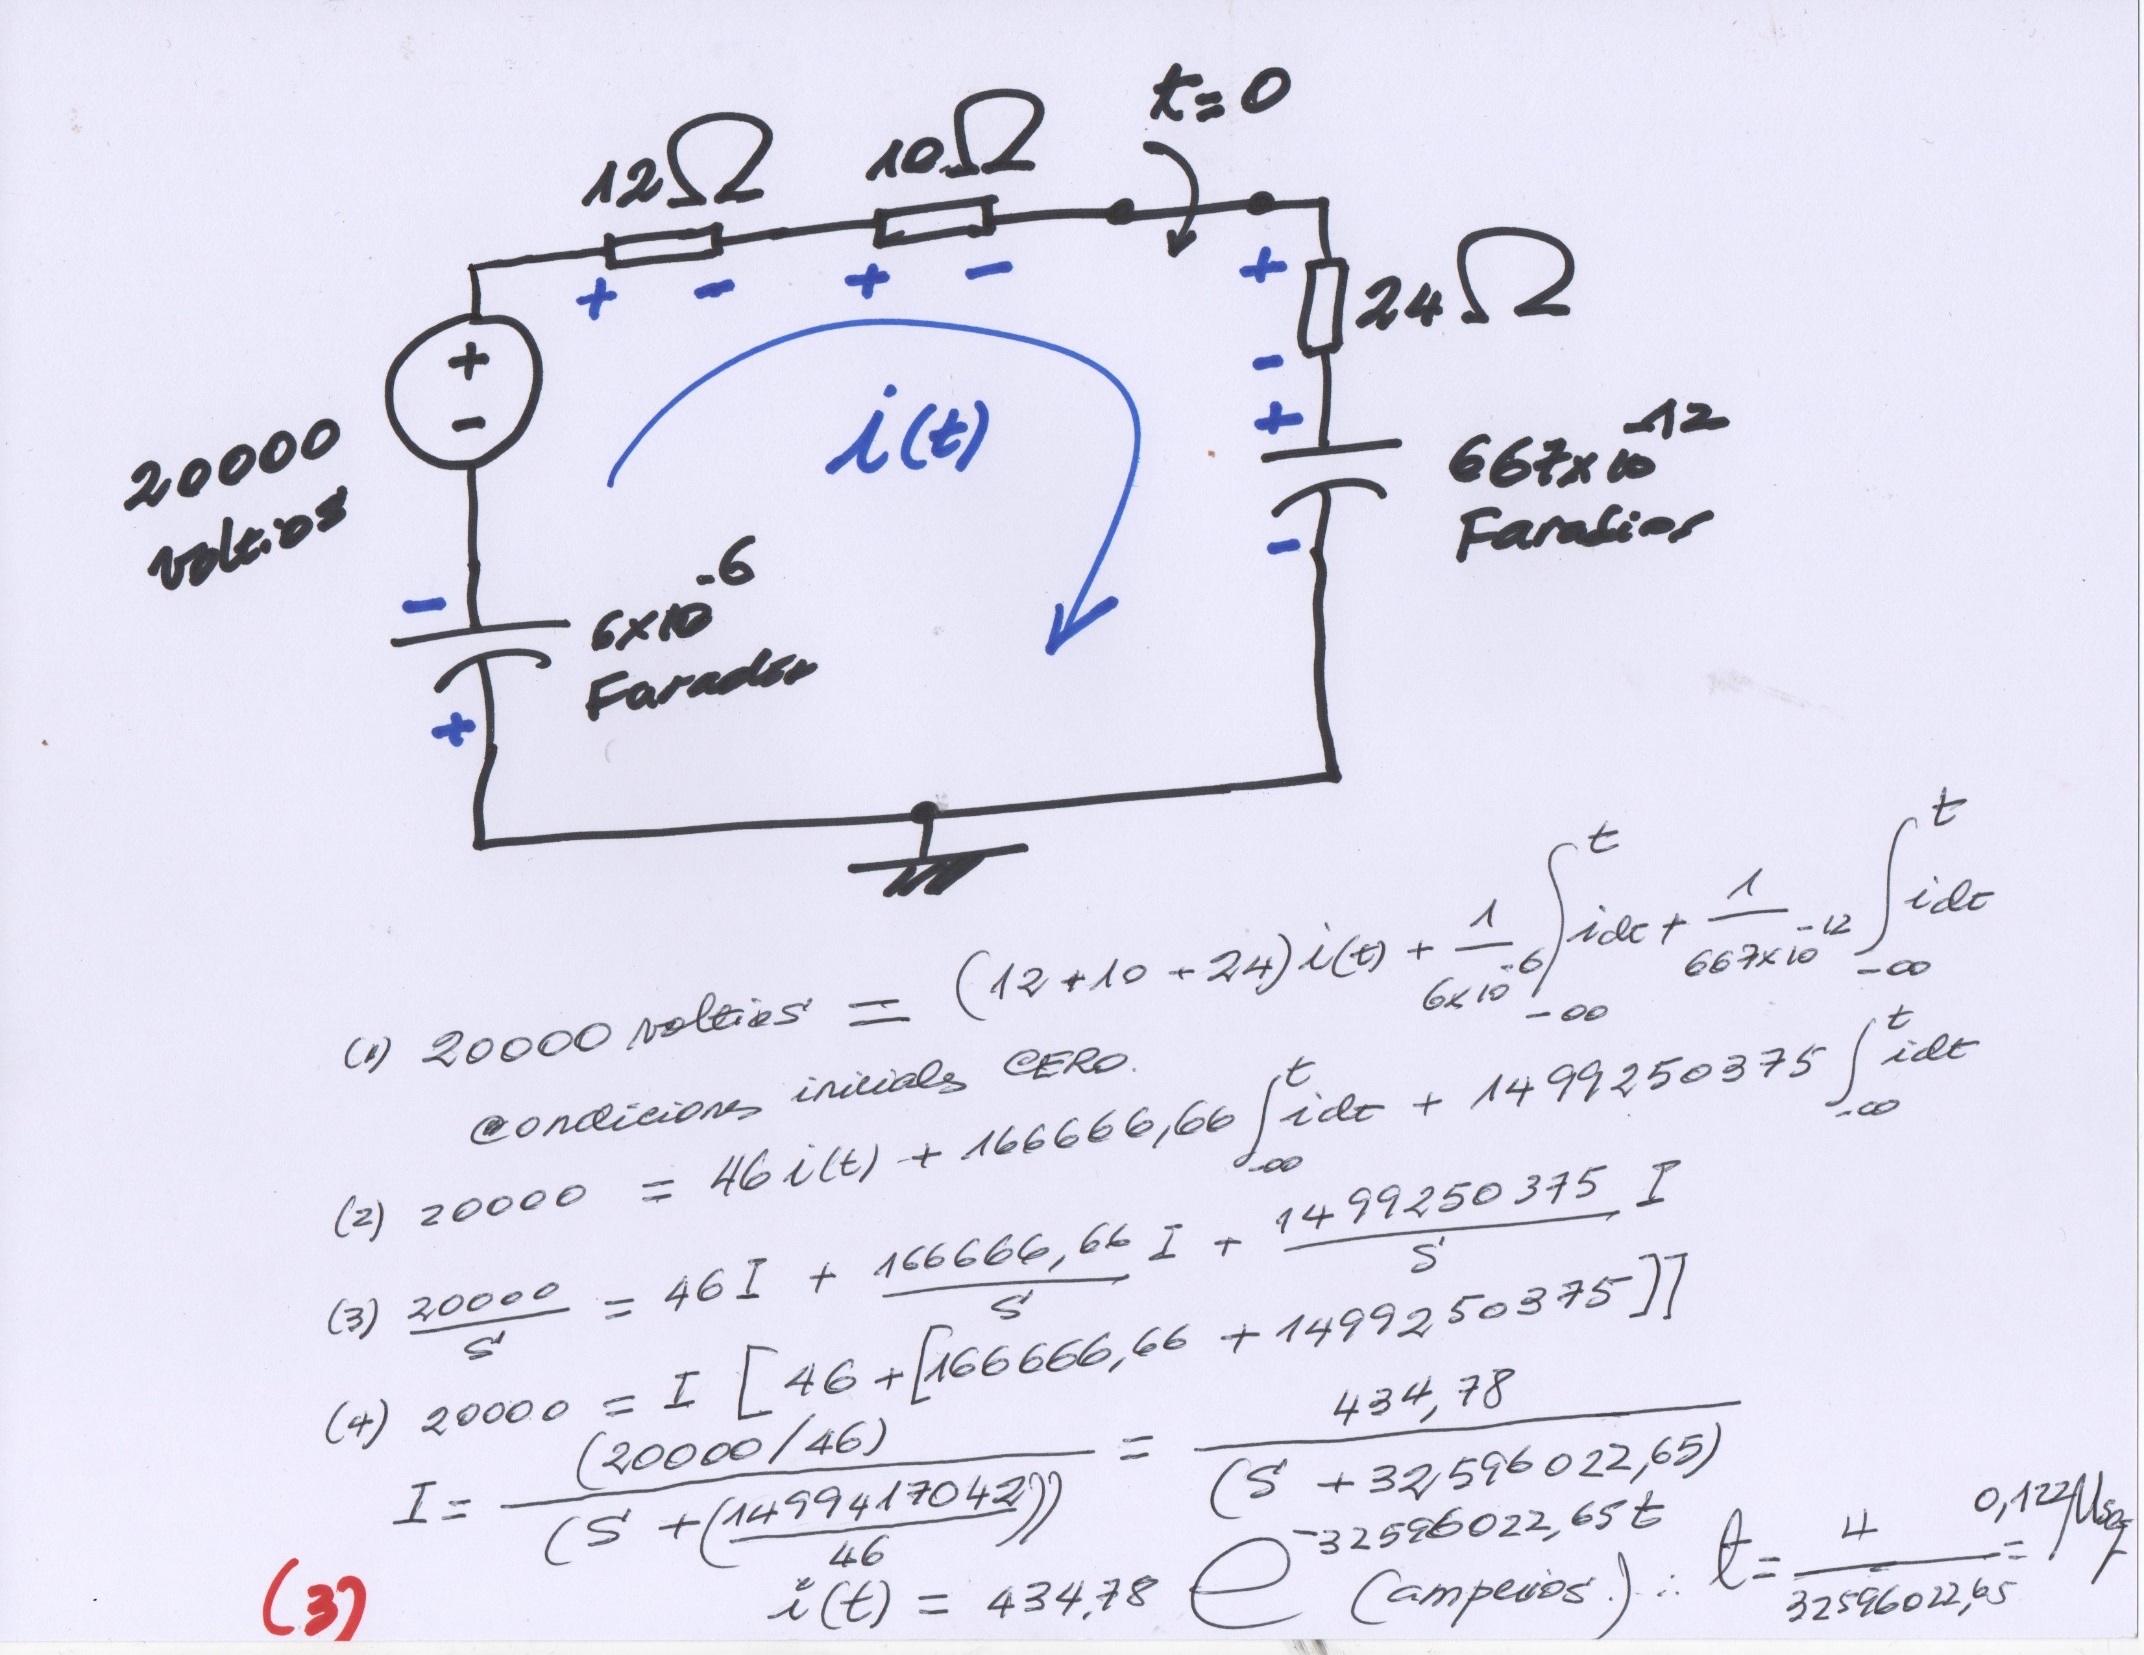 t=0
12Ω
10Ω
+ - + - +
24Ω
-
+
-
i(t)
20000
voltios
+
667x10^-12
Faradios
-
-
6x10^-6
Faradios
+
(1) 20000 voltios = (12+10+24) i(t) + 1/6x10^-6 ∫_-∞^t idt + 1/667x10^-12 ∫_-∞^t idt
condiciones iniciales CERO.
(2) 20000 = 46 i(t) + 166666,66 ∫_-∞^t idt + 1499250375 ∫_-∞^t idt
(3) 20000/S = 46 I + 166666,66/S I + 1499250375/S I
(4) 20000 = I [46 + [166666,66 + 1499250375]]
I = (20000/46)/(S + (1499417042/46)) = 434,78/(S + 32596022,65)
i(t) = 434,78 e^-32596022,65t (amperios.) ∴ t = 4/32596022,65 = 0,122 μseg
(3)